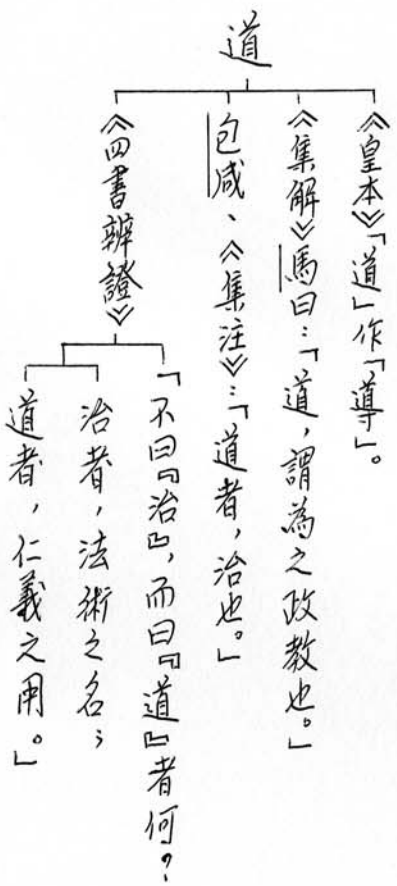 道
《皇本》「道」作「導」。
《集解》馬曰：「道，謂為之政教也。」
包咸、《集注》：「道者，治也。」
《四書辨證》
「不曰『治』，而曰『道』者何？
治者，法術之名；
道者，仁義之用。」